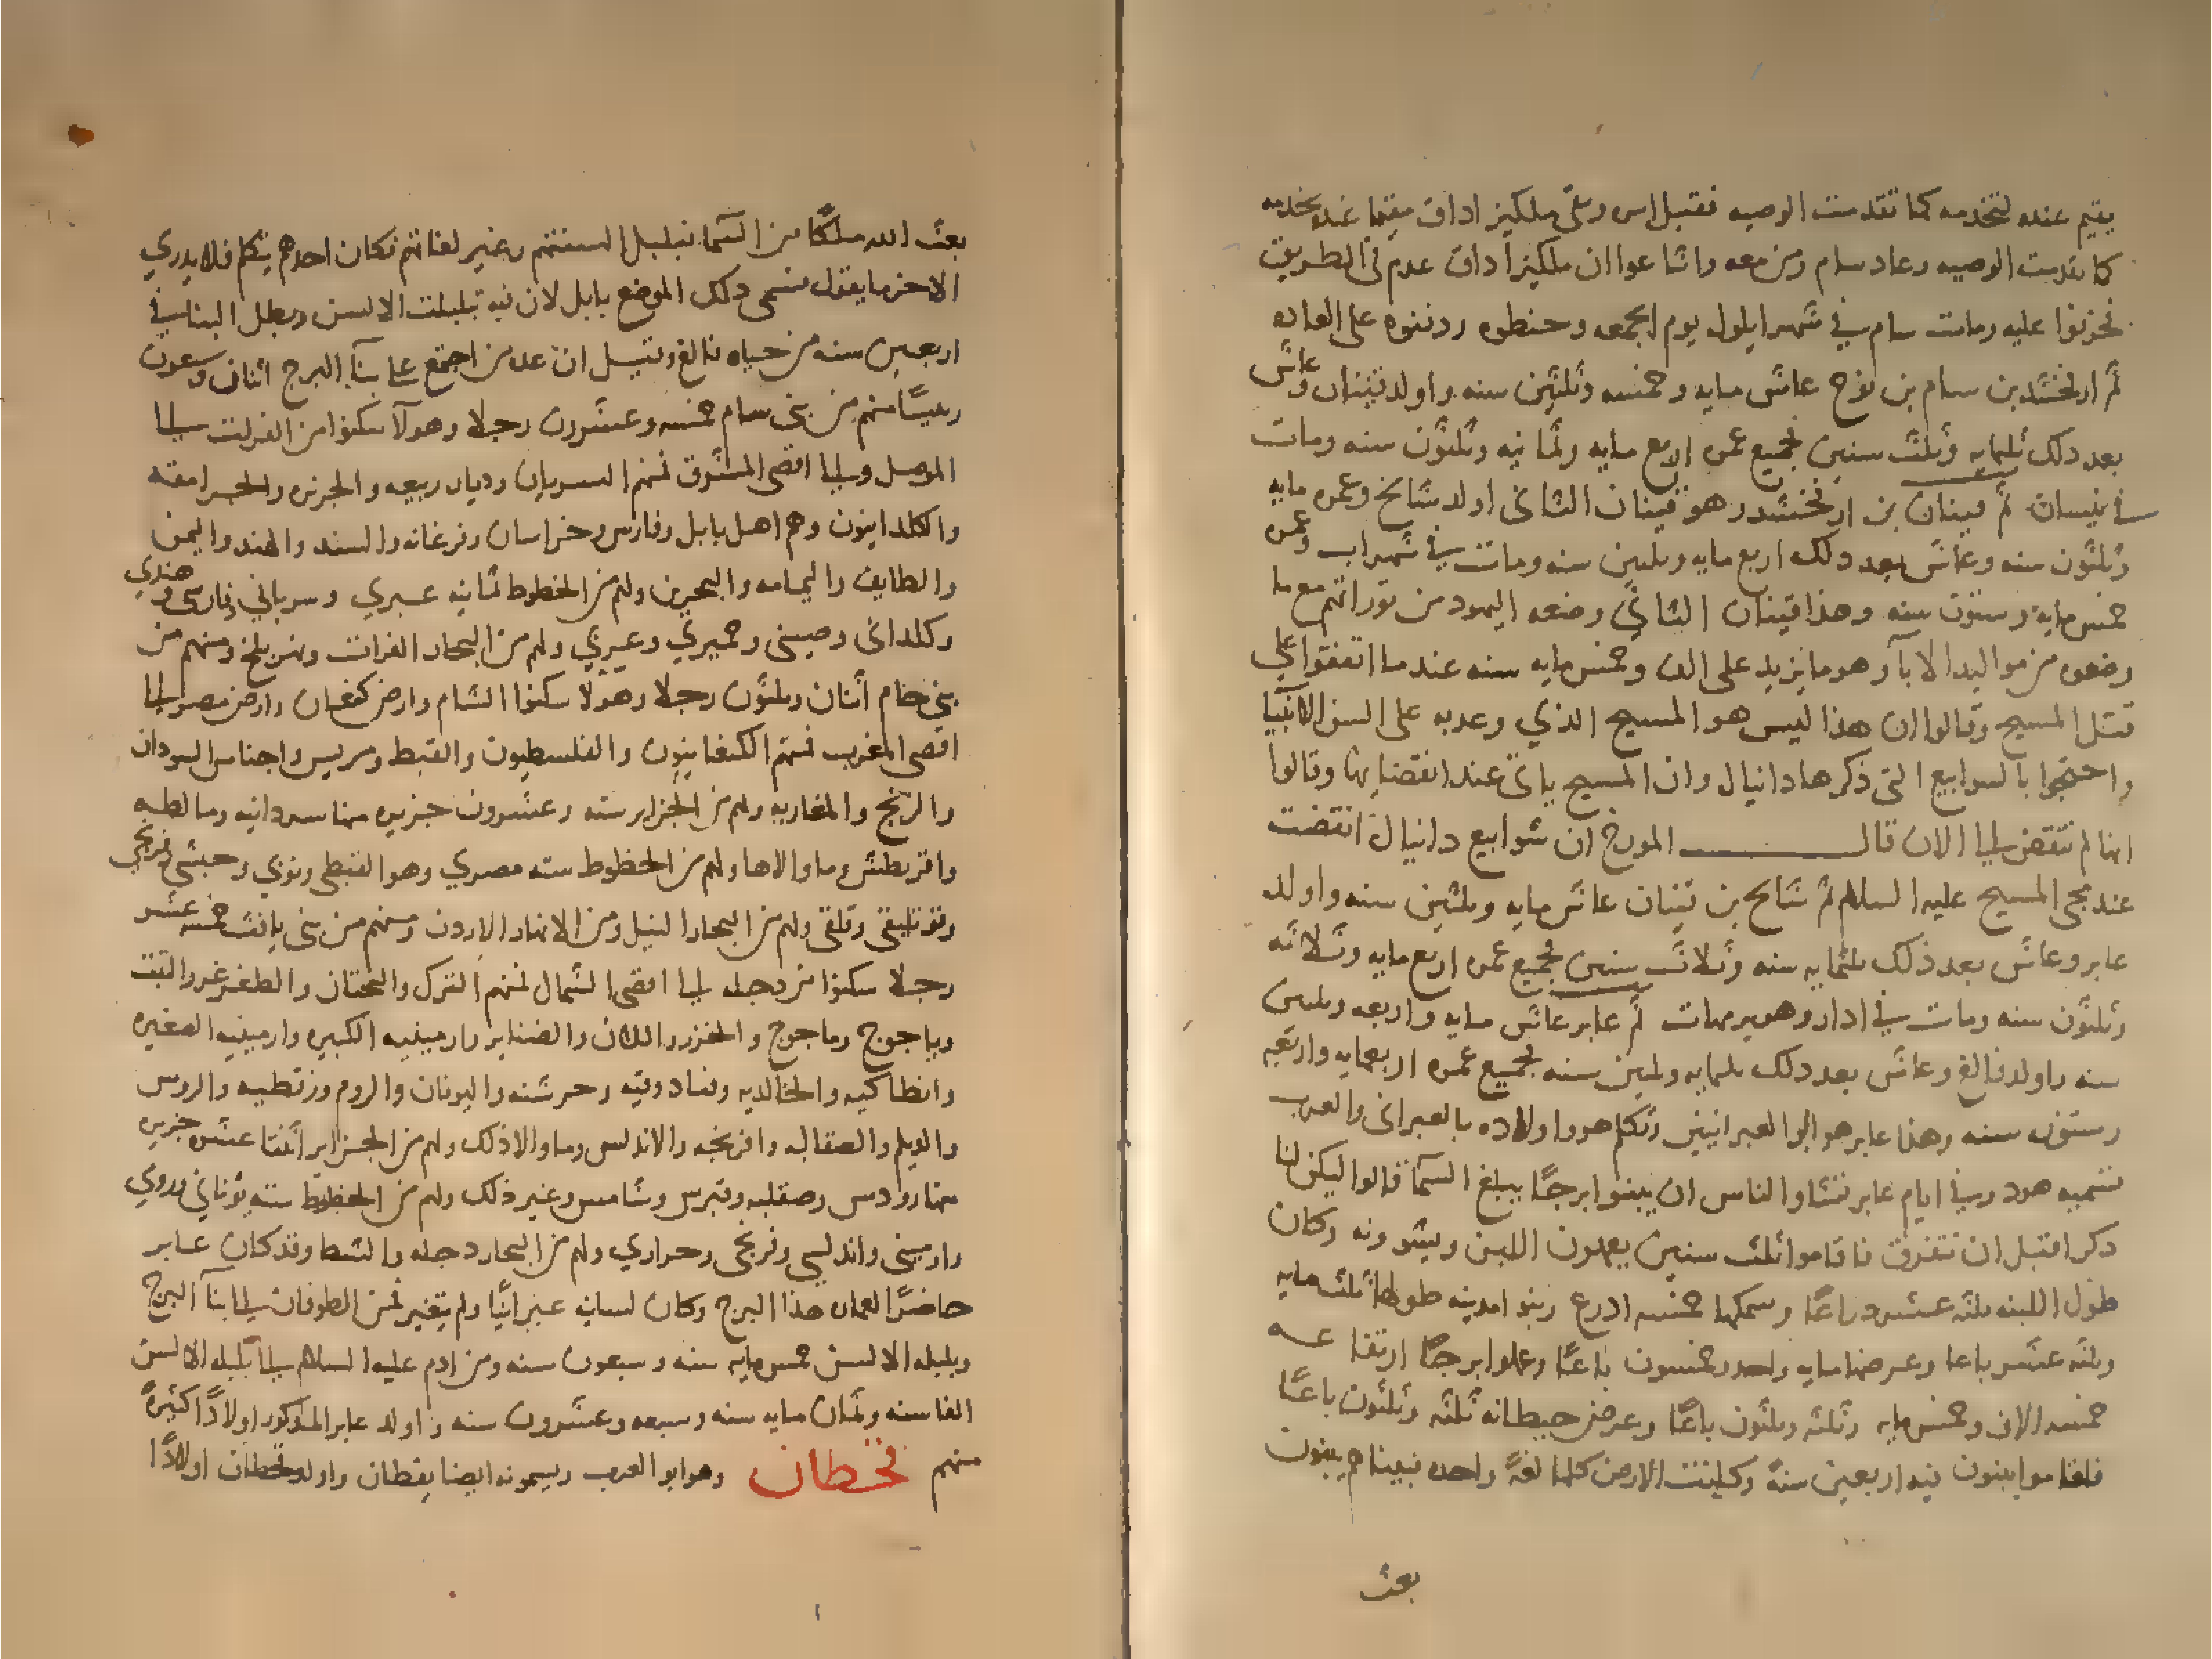 يقيم عنده لتخدمه كما تقدمت الوصيه فقبل امره وبقى ملكيزاداق مقيما عنده يخدمه
كما تقدمت الوصيه وعاد سام ومن معه واشاعوا ان ملكيزاداق عدم في الطريق
فحزنوا عليه ومات سام في شهر ايلول يوم الجمعه وحنطوه ودفنوه على العاده
ثم ارفخشد بن سام بن نوح عاش مايه وخمسه وثلثين سنه واولد قينان وعاش
بعد دلك ثلثمايه وثلث سنين فجميع عمره اربع مايه وثمانيه وثلثون سنه ومات
في نيسان ثم قينان بن ارفخشد وهو قينان الثانى اولد شالخ وعمره مايه
وثلثون سنه وعاش بعد دلك اربع مايه وثلثين سنه ومات في شهر اب وعمره
خمس مايه وستون سنه وهذا قينان الثاني وضعه اليهود من توراتهم مع ما
وضعوه من مواليد الابآ وهو ما يزيد على الف وخمس مايه سنه عندما اتفقوا على
قتل المسيح وقالوا ان هذا ليس هو المسيح الذي وعد به على السن الانبيا
واحتجوا بالسوابيع التى ذكرها دانيال وان المسيح ياتى عند انقضايها وقالوا
انها لم تنقض الى الان قال المورخ ان سوابيع دانيال انقضت
عند مجى المسيح عليه السلام ثم شالح بن قينان عاش مايه وثلثين سنه واولد
عابر وعاش بعد ذلك ثلثمايه سنه وثلاث سنين فجميع عمره اربع مايه وثلاثه
وثلثون سنه ومات في ادار وهو برمهات ثم عابر عاش مايه واربعه وثلثين
سنه واولد فالغ وعاش بعد دلك ثلثمايه وثلثين سنه فجميع عمره اربعمايه واربعه
وستون سنه وهذا عابر هو ابو العبرانيين وتكلم هو واولاده بالعبرانى والعرب
تسميه هود وفي ايام عابر تشاوا الناس ان يبنوا برجًا يبلغ السمآ قالوا ليكن لنا
دكرا قبل ان نتفرق فاقاموا ثلث سنين يعملون اللبن ويشوونه وكان
طول اللبنه ثلثه عشر دراعًا وسمكها خمسه ادرع وبنوا مدينه طولها ثلث مايه
وثلثه عشر باعا وعرضها مايه واحد وخمسون باعًا وعملوا برجًا ارتفاعه
خمسه الاف وخمس مايه وثلثه وثلثون باعًا وعرض حيطانه ثلثه وثلثون باعًا
فاقاموا يبنون فيه اربعين سنةً وكانت الارض كلها لغةً واحده فبينا هم يبنون
بعث
بعث الله ملكًا من السمآ فبلبل السنتهم وغير لغاتهم فكان احدهم يتكلم فلا يدري
الاخر ما يقول فسمى دلك الموضع بابل لان فيه تبلبلت الالسن وبطل البنا في
اربعين سنه من حياه فالغ وقيل ان عده من اجتمع على بنآ البرج اثنان وسبعون
رييسًا منهم من بنى سام خمسه وعشرون رجلا وهولآ سكنوا من الفرات الى
الموصل والى اقصى المشرق فمنهم السريان وديار ربيعه والجزيره والجرامقه
والكلدانيون وهم اهل بابل وفارس وخراسان وفرغانه والسند والهند واليمن
والطايف واليمامه والبحرين ولهم من الخطوط ثمانيه عبري وسرياني وفارسى وهندي
وكلدانى وصينى وحميري وعربي ولهم من البحار الفرات ونهر بلخ ومنهم من
بني حام اثنان وثلثون رجلا وهولا سكنوا الشام وارض كنعان وارض مصر الى
اقصى المغرب فمنهم الكنعانيون والفلسطيون والقبط ومريس واجناس السودان
والزنج والمغاربه ولهم من الجزاير سته وعشرون جزيره منها سردانيه ومالطه
واقريطش وما والاها ولهم من الخطوط سته مصري وهو القبطى ونوبي وحبشى وفرنجي
وقوتليقى وقلقى ولهم من البحار النيل ومن الانهار الاردن ومنهم من بنى يافث خمسه عشر
رجلا سكنوا من دجله الى اقصى الشمال فمنهم الترك والبجتان والطغرغر والتبت
وياجوج وماجوج والخزر واللان والضناير وارمينيه الكبيره وارمينيه الصغيره
وانطاكيه والخالديه وفنادوقيه وحرشنه واليونان والروم وزنطيه والروس
والديلم والصقالبه وافرنجه والاندلس وما والا ذلك ولهم من الجزاير اثنتا عشر جزيره
منها رودس وصقليه وقبرس وشامس وغير ذلك ولهم من الخطوط سته يوناني وروي
وارمينى واندلسى وفرنجى وحراري ولهم من البحار دجله والشط وقد كان عابر
حاضرًا لعماره هذا البرج وكان لسانه عبرانيًا ولم يتغير فمن الطوفان الى بنآ البرج
وبلبله الالسن خمس مايه سنه وسبعون سنه ومن ادم عليه السلام الى بلبله الالسن
الفا سنه وثمان مايه سنه وسبعه وعشرون سنه واولد عابر المذكور اولادًا كثيرةً
منهم قحطان وهو ابو العرب ويسمونه ايضا يقطان واولد قحطان اولادًا